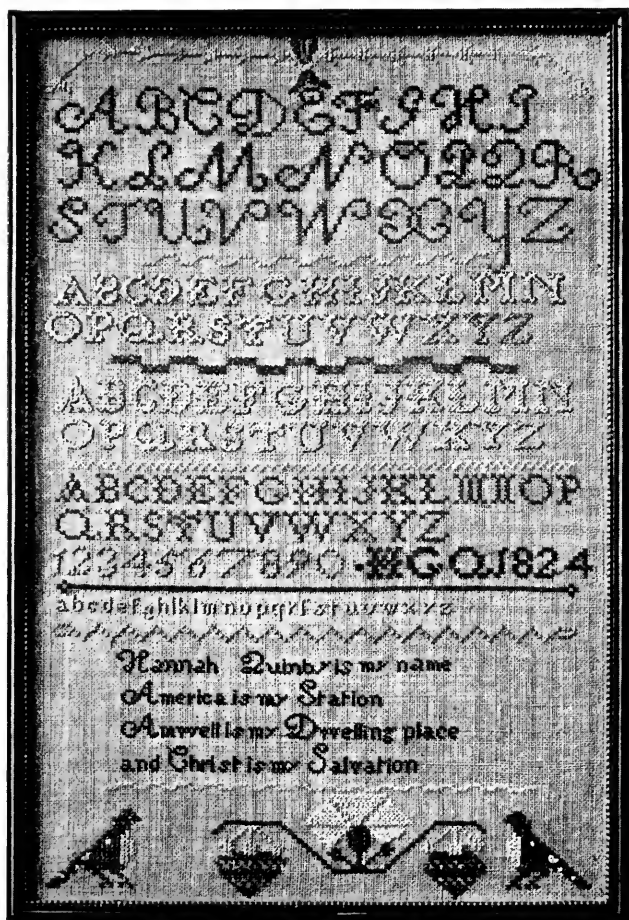 ABCDEFGHI
KLMNOPQR
STUVWXYZ
ABCDEFGHIJKLMN
OPQRSTUVWXYZ
ABCDEFGHIJKLMN
OPQRSTUVWXYZ
ABCDEFGHIJKLMNOP
QRSTUVWXYZ
1234567890 · H G Q 1824
abcdefghiklmnopqrſstuvwxyz
Hannah Quinby is my name
America is my Station
Amwell is my Dwelling place
and Christ is my Salvation